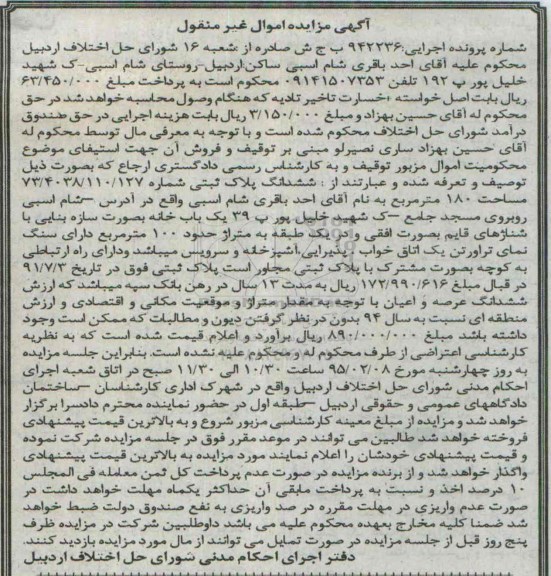 آگهی مزایده اموال غیر منقول
شماره پرونده اجرایی:۹۴۲۲۳۶ ب ج ش صادره از :شعبه ۱۶ شورای حل اختلاف اردبیل
محکوم علیه آقای احد باقری شام اسبی ساکن:اردبیل-روستای شام اسبی-ک شهید
خلیل پور پ ۱۹۲ تلفن ۰۹۱۴۱۵۰۷۳۵۳ محکوم است به پرداخت مبلغ ۶۳/۴۵۰/۰۰۰
ریال بابت اصل خواسته +خسارت تاخیر تادیه که هنگام وصول محاسبه خواهد شد در حق
محکوم له آقای حسین بهزاد و مبلغ ۳/۱۵۰/۰۰۰ ریال بابت هزینه اجرایی در حق صندوق
درآمد شورای حل اختلاف محکوم شده است و با توجه به معرفی مال توسط محکوم له
آقای حسین بهزاد ساری نصیرلو مبنی بر توقیف و فروش آن جهت استیفای موضوع
محکومیت اموال مزبور توقیف و به کارشناس رسمی دادگستری ارجاع که بصورت ذیل
توصیف و تعرفه شده و عبارتند از : ششدانگ پلاک ثبتی شماره ۷۳/۴۰۳۸/۱۱۰/۱۲۷
مساحت ۱۸۰ مترمربع به نام آقای احد باقری شام اسبی واقع در آدرس –شام اسبی
روبروی مسجد جامع –ک شهید خلیل پور پ ۳۹ یک باب خانه بصورت سازه بنایی با
شناژهای قایم بصورت افقی و در یک طبقه به متراژ حدود ۱۰۰ مترمربع دارای سنگ
نمای تراورتن یک اتاق خواب ، پذیرایی،آشپزخانه و سرویس میباشد ودارای راه ارتباطی
به کوچه بصورت مشترک با پلاک ثبتی مجاور است پلاک ثبتی فوق در تاریخ ۹۱/۷/۳
در قبال مبلغ ۱۷۲/۹۹۰/۶۱۶ ریال به مدت ۱۳ سال در رهن بانک سپه میباشد که ارزش
ششدانگ عرصه و اعیان با توجه به مقدار متراژ و موقعیت مکانی و اقتصادی و ارزش
منطقه ای نسبت به سال ۹۴ بدون در نظر گرفتن دیون و مطالبات که ممکن است وجود
داشته باشد مبلغ ۸۹۰/۰۰۰/۰۰۰ ریال برآورد و اعلام قیمت شده است که به نظریه
کارشناسی اعتراضی از طرف محکوم له و محکوم علیه نشده است. بنابراین جلسه مزایده
به روز چهارشنبه مورخ ۹۵/۰۲/۰۸ ساعت ۱۰/۳۰ الی ۱۱/۳۰ صبح در اتاق شعبه اجرای
احکام مدنی شورای حل اختلاف اردبیل واقع در شهرک اداری کارشناسان –ساختمان
دادگاههای عمومی و حقوقی اردبیل –طبقه اول در حضور نماینده محترم دادسرا برگزار
خواهد شد و مزایده از مبلغ معینه کارشناسی مزبور شروع و به بالاترین قیمت پیشنهادی
فروخته خواهد شد طالبین می توانند در موعد مقرر فوق در جلسه مزایده شرکت نموده
و قیمت پیشنهادی خودشان را اعلام نمایند مورد مزایده به بالاترین قیمت پیشنهادی
واگذار خواهد شد و از برنده مزایده در صورت عدم پرداخت کل ثمن معامله فی المجلس
۱۰ درصد اخذ و نسبت به پرداخت مابقی آن حداکثر یکماه مهلت خواهد داشت در
صورت عدم واریزی در مهلت مقرره در صد واریزی به نفع صندوق دولت ضبط خواهد
شد ضمنا کلیه مخارج بعهده محکوم علیه می باشد داوطلبین شرکت در مزایده ظرف
پنج روز قبل از جلسه مزایده در صورت تمایل می توانند از مال مورد مزایده بازدید کنند.
دفتر اجرای احکام مدنی شورای حل اختلاف اردبیل